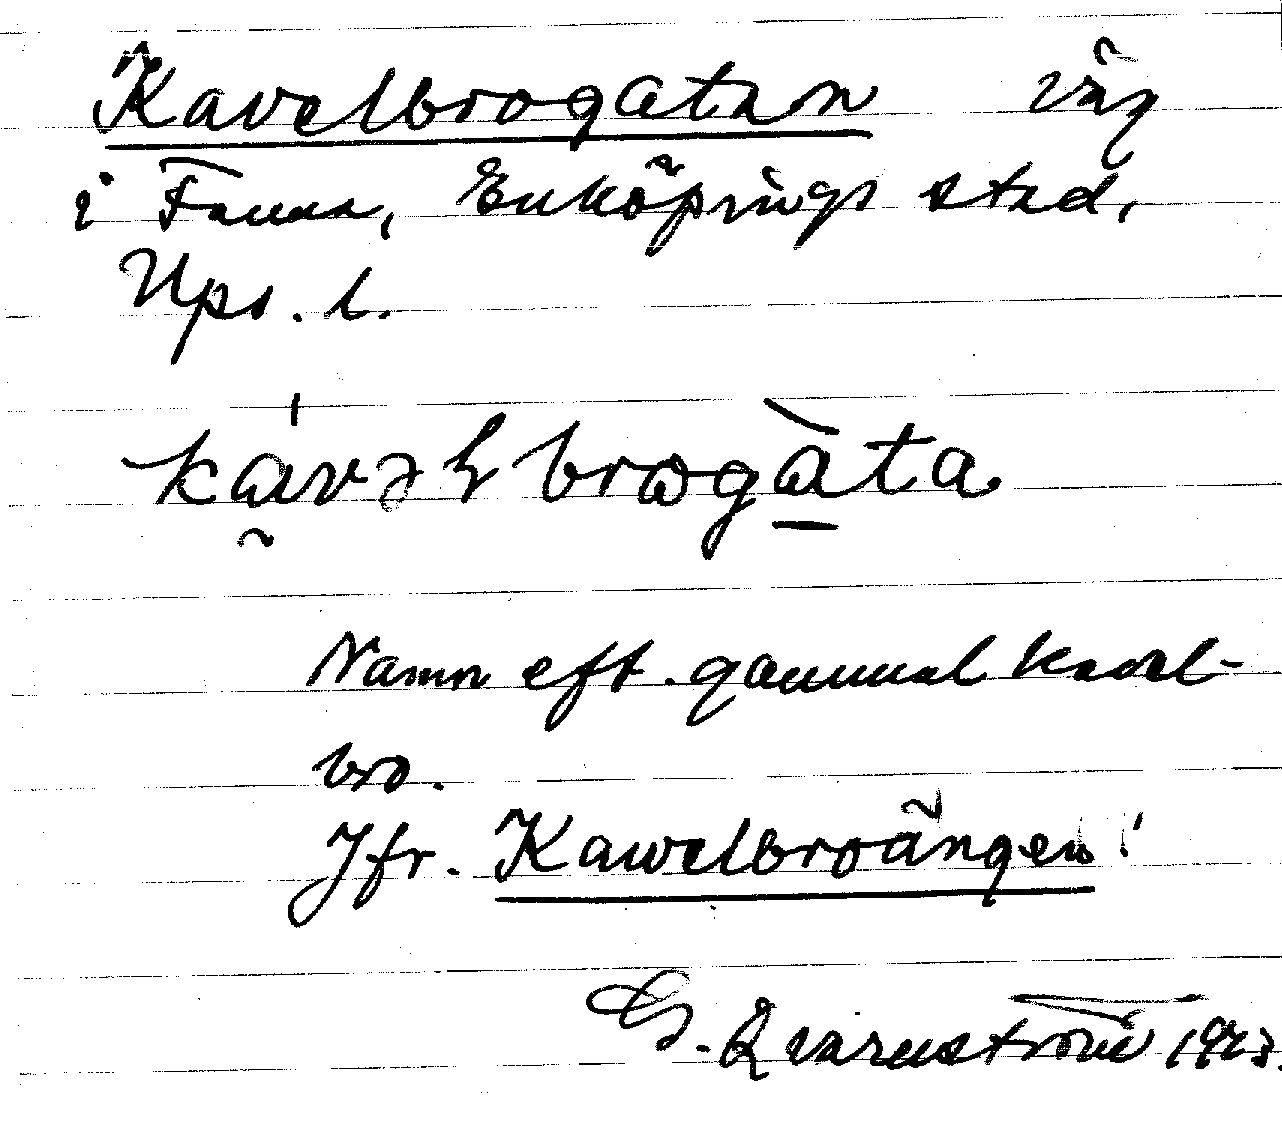 Kavelbrogatan väg
i Fanna, Enköpings stad,
Ups. l.
kávəl brogàta
Namn eft. gammal kavel-
bro.
Jfr. Kavelbroängen!
G. Qvarnström 1923.